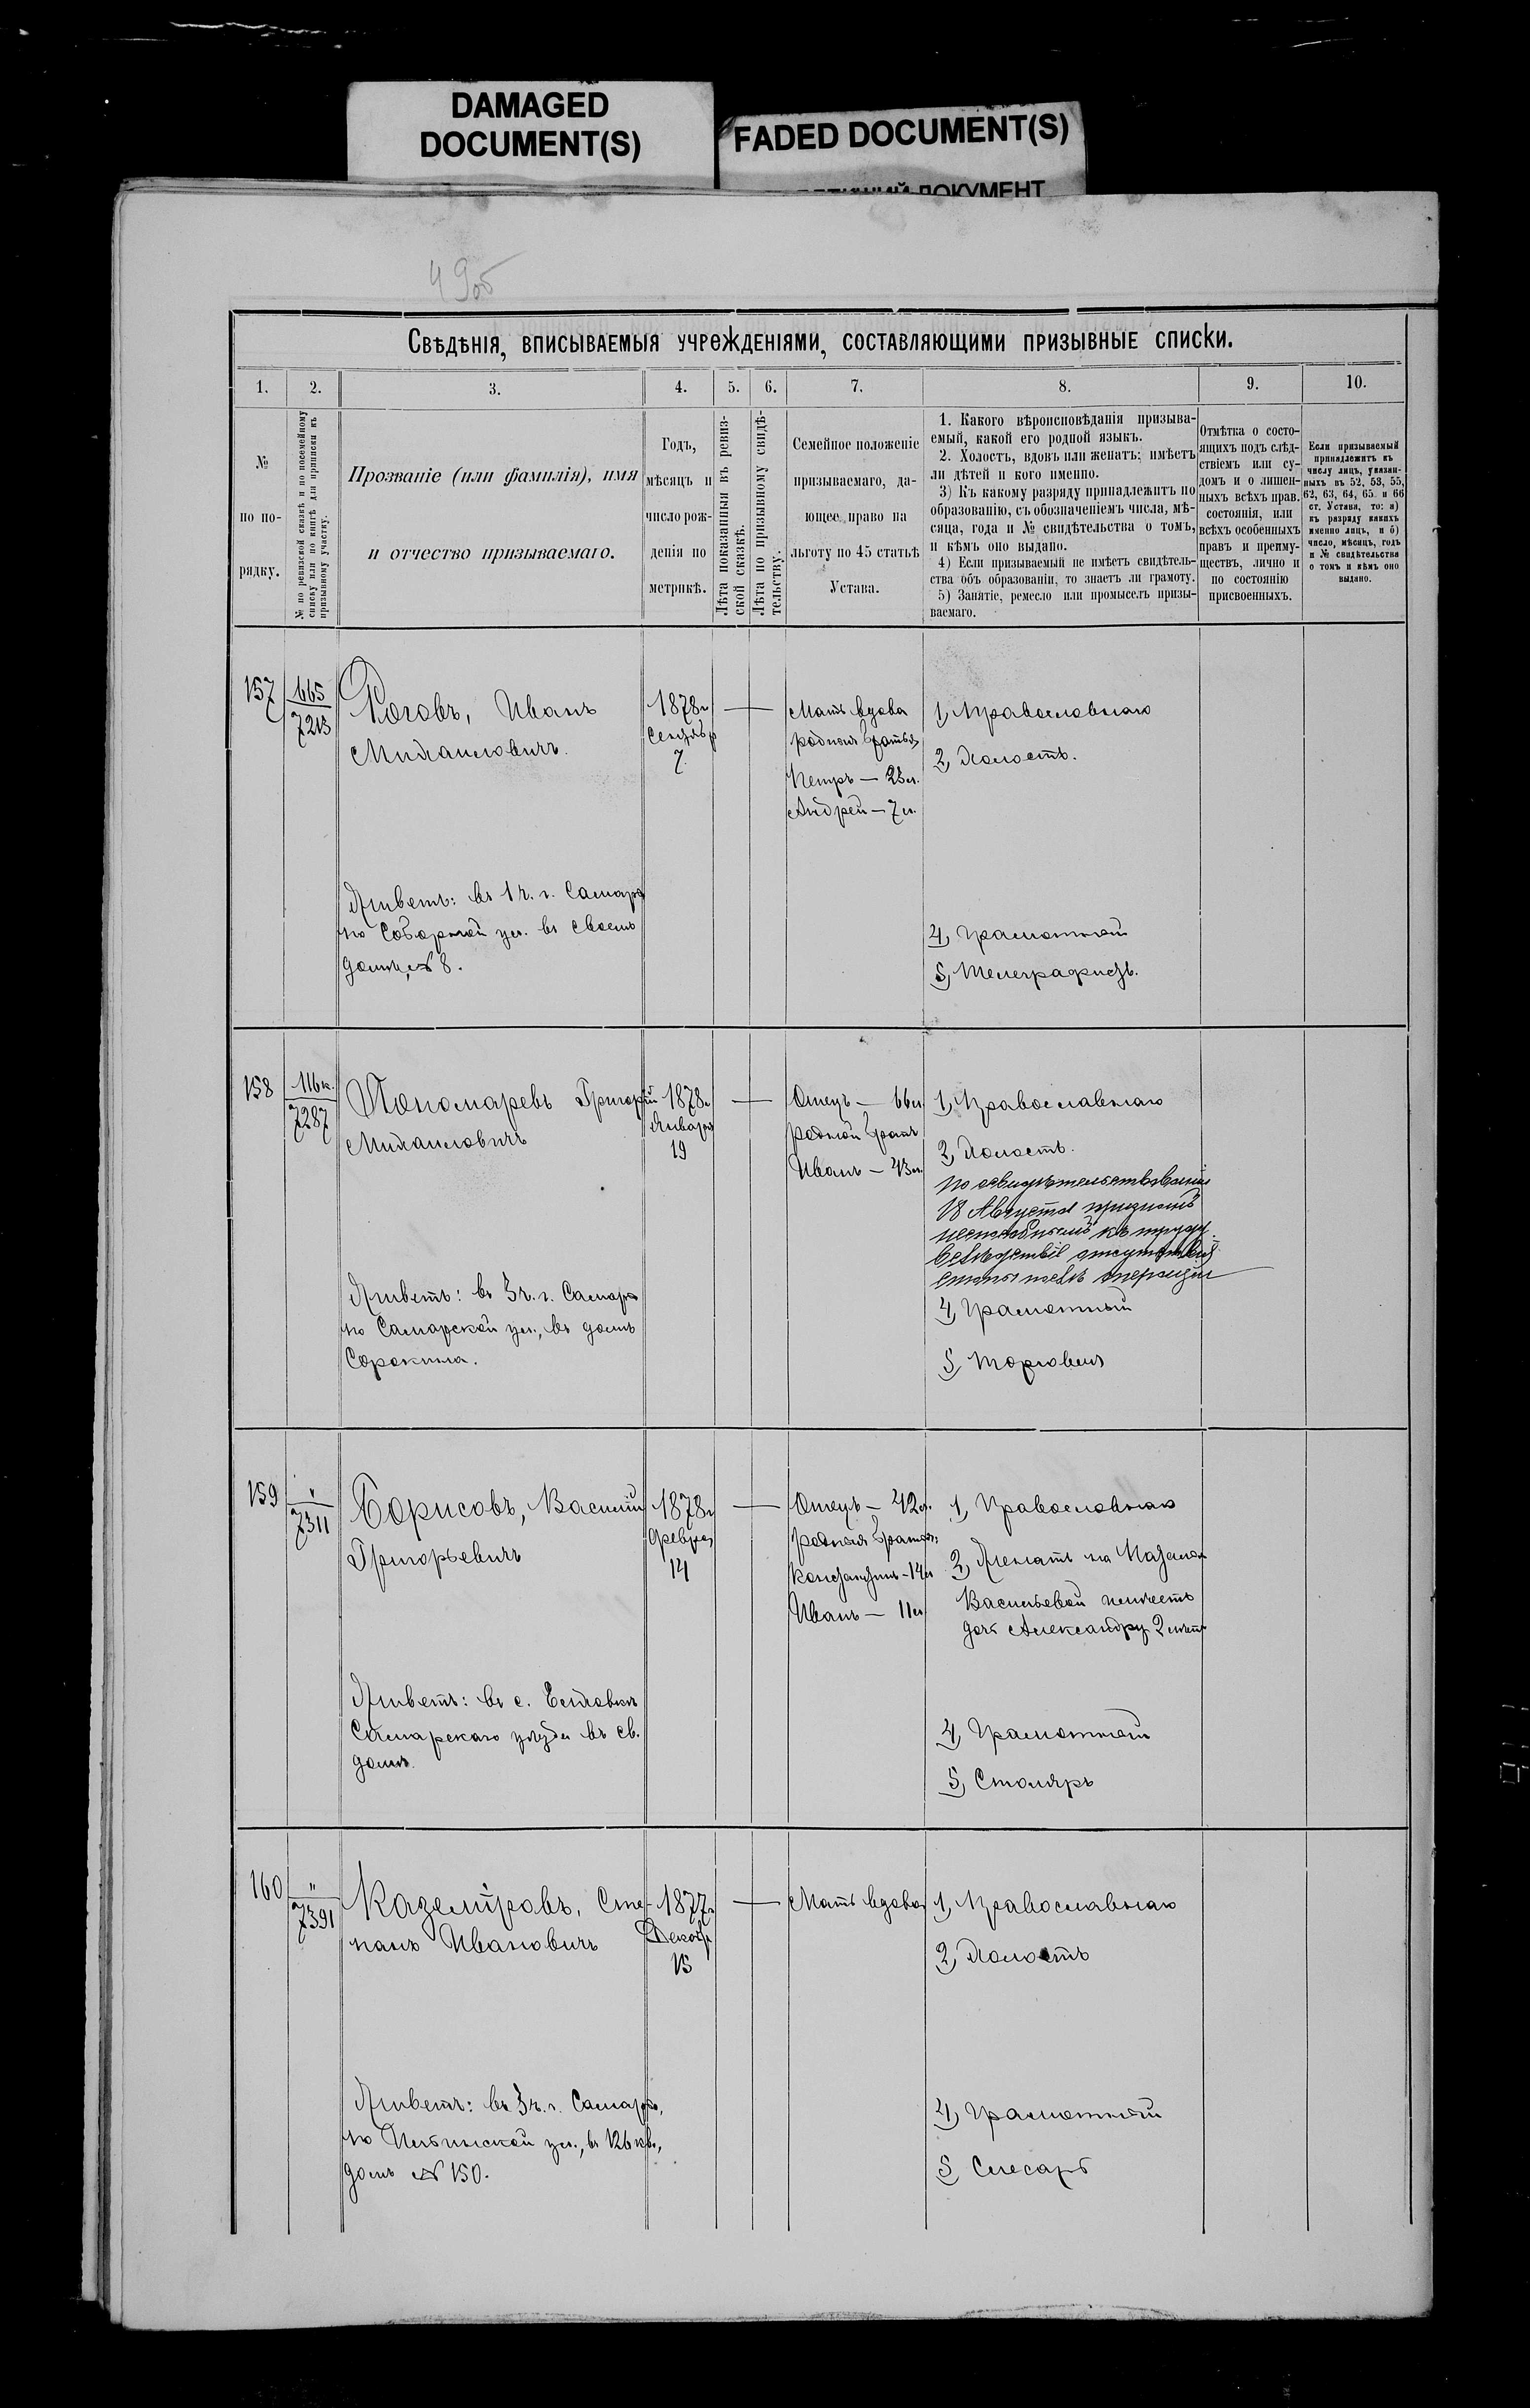 DAMAGED
DOCUMENT(S)
FADED DOCUMENT(S)
ДОКУМЕНТ
49об
Свѣдѣнія, вписываемыя учрежденіями, составляющими призывные списки.
1. 2. 3. 4. 5. 6. 7. 8. 9. 10.
№
по по-
рядку.
№ по ревизской сказкѣ и по посемейному
списку или по книгѣ для приписки къ
призывному участку.
Прозваніе (или фамилія), имя
и отчество призываемаго.
Годъ,
мѣсяцъ и
число рож-
денія по
метрикѣ.
Лѣта показанныя въ ревиз-
ской сказкѣ.
Лѣта по призывному свидѣ-
тельству.
Семейное положеніе
призываемаго, да-
ющее право на
льготу по 45 статьѣ
Устава.
1. Какого вѣроисповѣданія призыва-
емый, какой его родной языкъ.
2. Холостъ, вдовъ или женатъ; имѣетъ
ли дѣтей и кого именно.
3) Къ какому разряду принадлежитъ по
образованію, съ обозначеніемъ числа, мѣ-
сяца, года и № свидѣтельства о томъ,
и кѣмъ оно выдано.
4) Если призываемый не имѣетъ свидѣтель-
ства объ образованіи, то знаетъ ли грамоту.
5) Занятіе, ремесло или промыселъ призы-
ваемаго.
Отмѣтка о состо-
ящихъ подъ слѣд-
ствіемъ или су-
домъ и о лишен-
ныхъ всѣхъ прав.
состоянія, или
всѣхъ особенныхъ
правъ и преиму-
ществъ, лично и
по состоянію
присвоенныхъ.
Если призываемый
принадлежитъ къ
числу лицъ, указан-
ныхъ въ 52, 53, 55,
62, 63, 64, 65 и 66
ст. Устава, то: а)
къ разряду какихъ
именно лицъ, и б)
число, мѣсяцъ, годъ
и № свидѣтельства
о томъ и кѣмъ оно
выдано.
157
665
7213
Роговъ, Иванъ
Михаиловичъ.
1878г
Сентябр
7.
Мать вдова
родныя братья
Петръ — 28л.
Андрей — 7л.
1, Православнаго
2, Холостъ.
Живетъ: въ 1 ч. г. Самары
по Соборной ул. въ своемъ
домѣ, № 8.
4, Грамотный
5, Телеграфистъ.
158
116к.
7287
Пономаревъ Григорій
Михаиловичъ
1878г
Января
19
Отецъ — 66л
родной братъ
Иванъ — 43л.
1, Православнаго
2, Холостъ.
по освидѣтельствованіи
18 Августа признанъ
неспособнымъ къ труду
вслѣдствіе
4, Грамотный
5, Торговецъ
Живетъ: въ 3 ч. г. Самары
по Самарской ул., въ домѣ
Сорокина.
159
"
7311
Борисовъ, Василій
Григорьевичъ
1878г
Феврал
14
Отецъ — 42л.
родныя братья:
Константинъ — 14л
Иванъ — 11л
1, Православнаго
2, Женатъ на
Васильевой имѣетъ
дочь Александру 2 лѣтъ
Живетъ: въ с.
Самарскаго уѣзда въ св.
домѣ.
4, Грамотный
5, Столяръ
160
"
7391
Каземіровъ, Сте-
панъ Ивановичъ
1877г
Декабр
15
Мать вдова
1, Православнаго
2, Холостъ
Живетъ: въ 3 ч. г. Самары,
по Ильинской ул., въ 126 кв.,
домъ № 150.
4, Грамотный
5, Слесарь